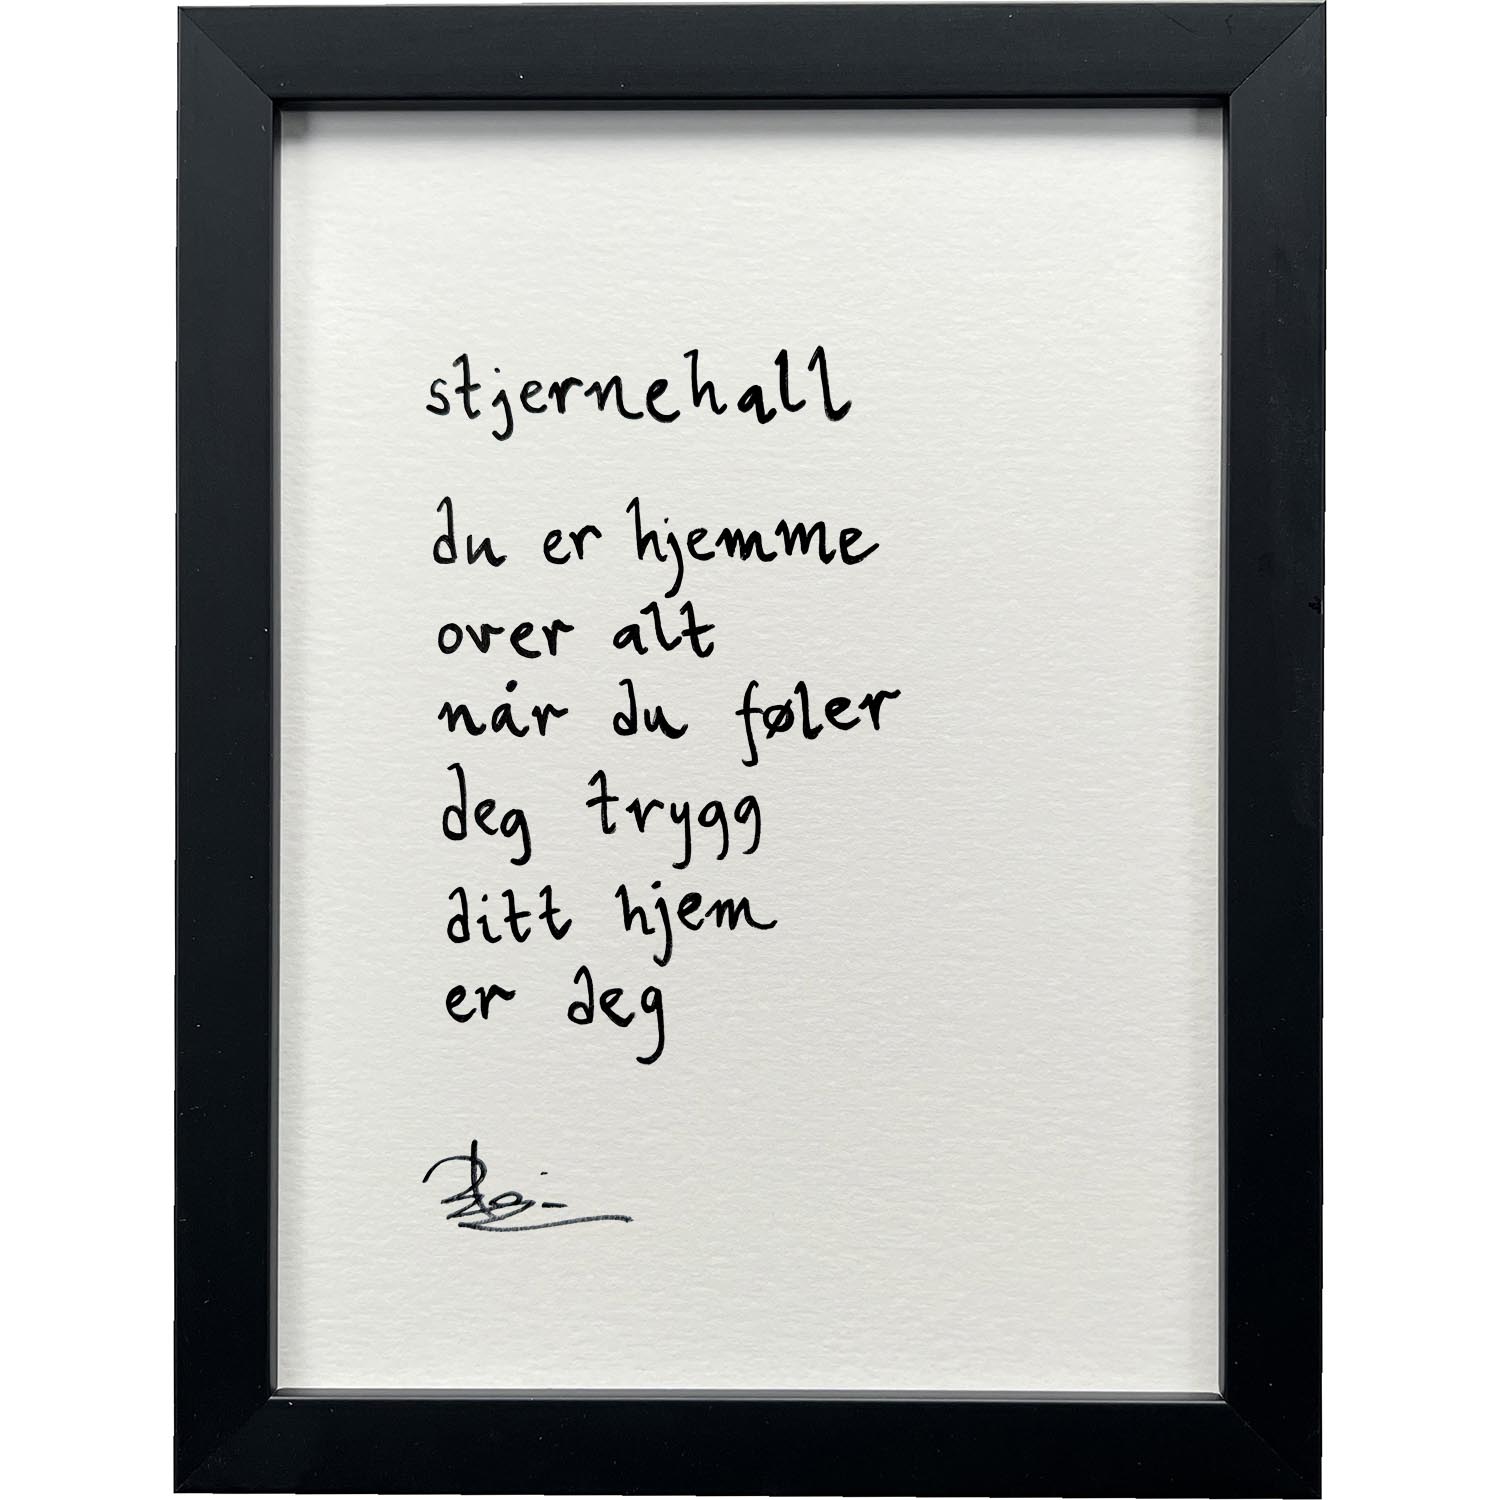 stjernehall
du er hjemme
over alt
når du føler
deg trygg
ditt hjem
er deg